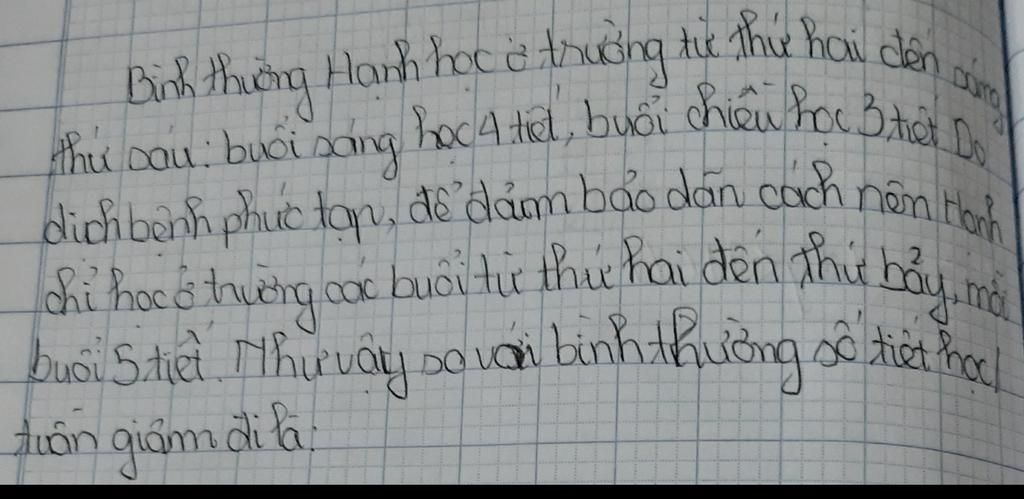 Bình thường Hạnh học ở trường từ thứ hai đến sáng
thứ sáu: buổi sáng học 4 tiết, buổi chiều học 3 tiết Do
dịch bệnh phức tạp, để đảm bảo dãn cách nên Hạnh
chỉ học ở trường các buổi từ thứ hai đến thứ bảy, mỗi
buổi 5 tiết. Như vậy so với bình thường số tiết học/
tuần giảm đi là: